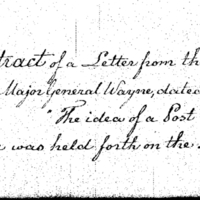 tract of a Letter from th
Major General Wayne, dated
"The idea of a Post
was held forth on the